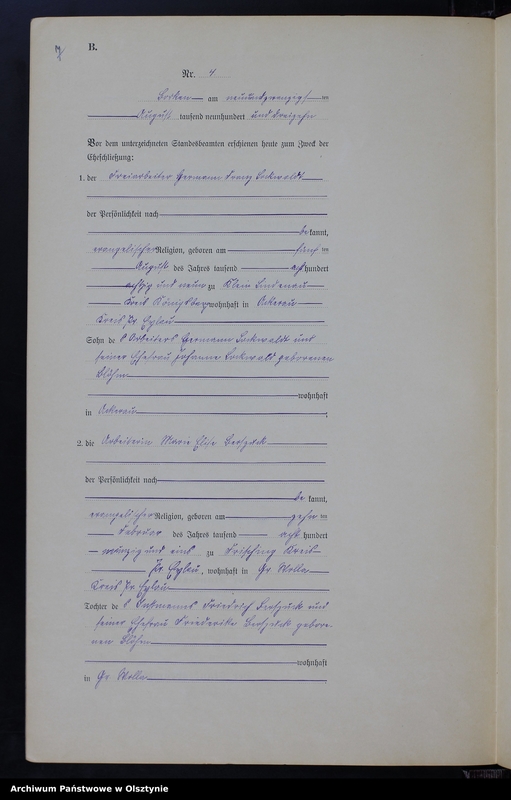 B.
Nr. 4
am neunundzwanzigsten
August tausend neunhundert und dreizehn
Vor dem unterzeichneten Standesbeamten erschienen heute zum Zweck der
Eheschließung:
1. der Hermann Franz
der Persönlichkeit nach
be kannt,
evangelischer Religion, geboren am fünften
August des Jahres tausend acht hundert
achtzig und neun zu Klein Lindenau
Kreis Königsberg, wohnhaft in Ackerau
Kreis Pr. Eylau
Sohn des Arbeiters Hermann und
seiner Ehefrau Johanne geborenen
Blöhm
wohnhaft
in Ackerau
2. die Arbeiterin Marie Elise
der Persönlichkeit nach
be kannt,
evangelischer Religion, geboren am zehnten
Februar des Jahres tausend acht hundert
neunzig und eins zu Frisching Kreis
Pr. Eylau, wohnhaft in Gr. Wolla
Kreis Pr. Eylau
Tochter des Instmanns Friedrich und
seiner Ehefrau Friederike gebore-
nen Blöhm
wohnhaft
in Gr. Wolla
Archiwum Państwowe w Olsztynie